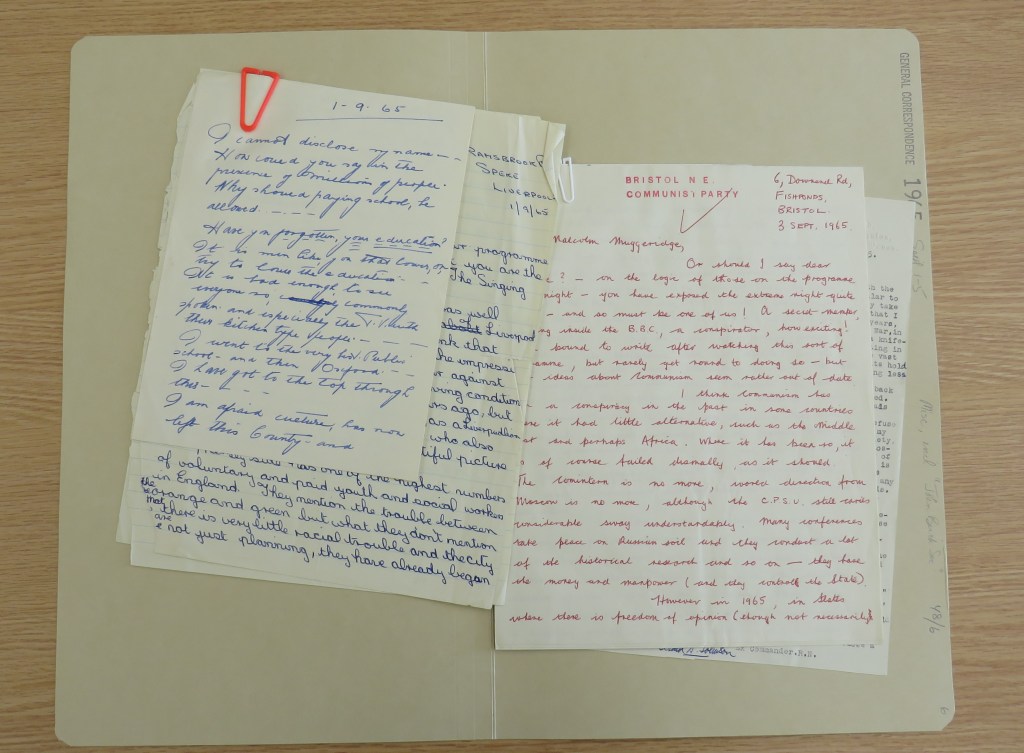 1-9-65
I cannot disclose my name - -
How could you say in the
presence of a million of people.
Why should paying school, be
allowed. - . - -
Have you forgotten, your education?
It is men like you that lowers, or
try to lower the education. -
It is - bad enough to see
everyone so, commonly
spoken. and especially the T.V. with
their kitchen type people. - -
I went to the very best Public
school - and then Oxford. - -
I have got to the top through
this - -
I am afraid culture, has now
left this County - and
SPEKE
LIVERPOOL
1/9/65
programme
you are the
The Singing
as well
of Liverpool
nk that
he impressi
against
ving condition
rs ago, but
as a Liverpudlian
who also
tiful picture
has one of the highest numbers
of voluntary and paid youth and social workers
in England. They mention the trouble between
the orange and green but what they don't mention
there is very little racial trouble and the city
are not just planning, they have already began
BRISTOL N.E.
COMMUNIST PARTY
6, Downend Rd,
FISHPONDS,
BRISTOL.
3 SEPT. 1965.
Malcolm Muggeridge,
Or should I say dear
? - on the logic of those on the programme
night - you have exposed the extreme right quite
- and so must be one of us! A secret member,
ng inside the B.B.C, a conspirator, how exciting!
bound to write after watching this sort of
amme, but rarely get round to doing so - but
ideas about Communism seem rather out of date
I think Communism has
a conspiracy in the past in some countries
ere it had little alternative, such as the Middle
and perhaps Africa. Where it has been so, it
of course failed dismally, as it should.
The Comintern is no more, world direction from
Moscow is no more, although the C.P.S.U. still carries
considerable sway understandably. Many conferences
take place on Russian soil and they conduct a lot
of the historical research and so on - they have
the money and manpower (and they control the State).
However in 1965, in States
where there is freedom of opinion (though not necessarily
GENERAL CORRESPONDENCE
1965
48/6
6
in the
lar to
y take
that I
years,
War, in
a knife-
ing in
vast
hold
ng less
back
Commander.R.N.